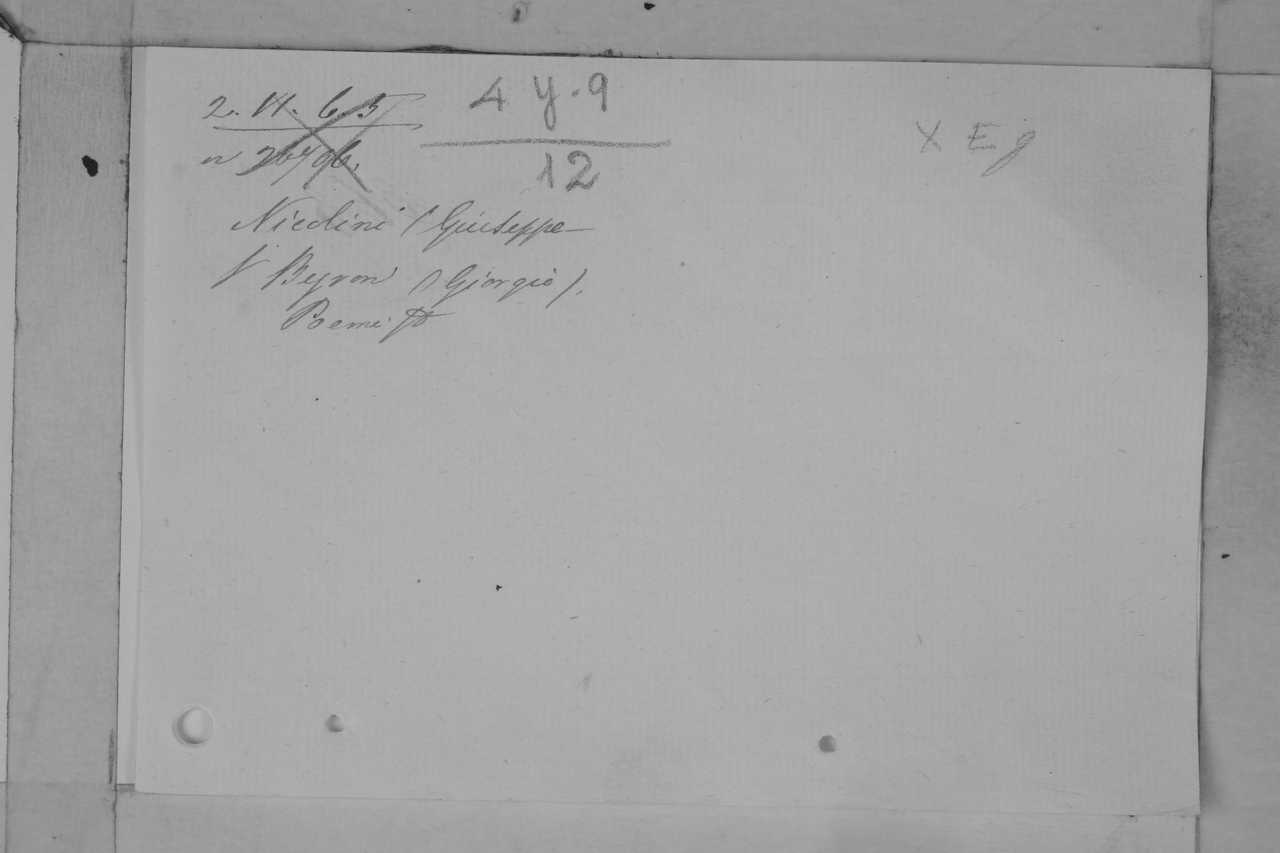 2. VI. 6. 5
4 y. 9
12
X E g
Nicolini (Giuseppe
V Beyron (Giorgio).
Poemi